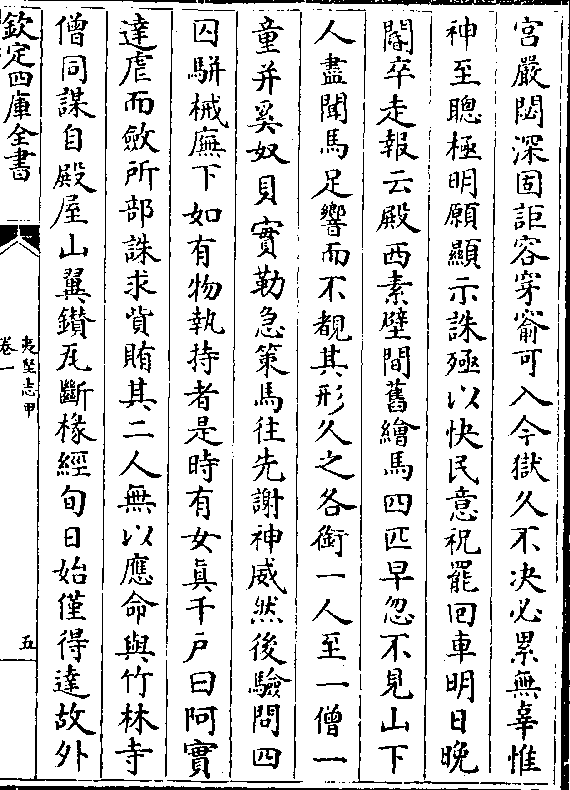 宫嚴閟深固詎容穿窬可入今獄久不决必累無辜惟
神至聰極明願顯示誅殛以快民意祝罷回車明日晚
閽卒走報云殿西素壁間舊繪馬四匹早忽不見山下
人盡聞馬足響而不覩其形久之各銜一人至一僧一
童并奚奴貝實勒急策馬往先謝神威然後驗問四
囚騈械廡下如有物執持者是時有女真千户曰阿實
達虐而斂所部誅求貲賄其二人無以應命與竹林寺
僧同謀自殿屋山翼鑚瓦斷椽經旬日始僅得達故外
欽定四庫全書
夷堅志甲
卷一
五